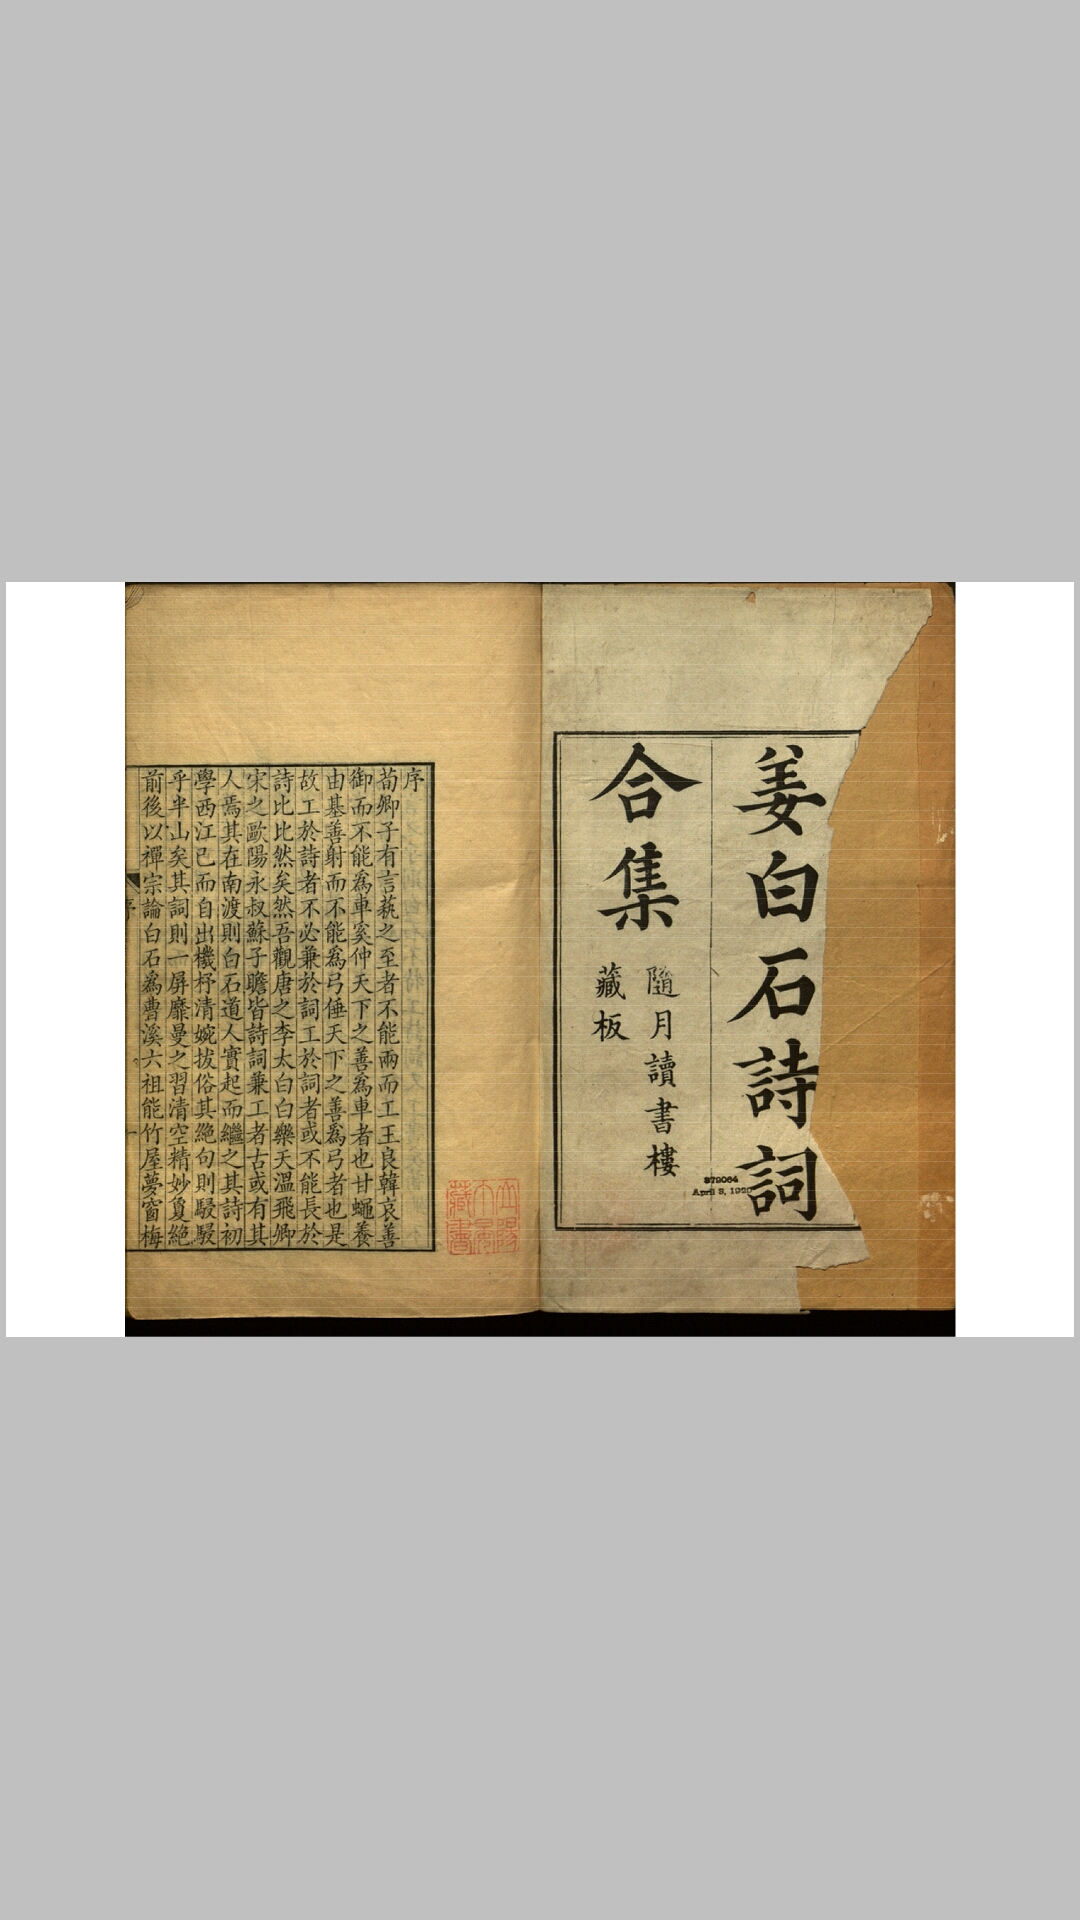 姜白石詩詞
合集
隨月讀書樓
藏板
379064
April 3, 1920
序
荀卿子有言蓺之至者不能兩而工王良韓哀善
御而不能爲車奚仲天下之善爲車者也甘蠅養
由基善射而不能爲弓倕天下之善爲弓者也是
故工於詩者不必兼於詞工於詞者或不能長於
詩比比然矣然吾觀唐之李太白白樂天溫飛卿
宋之歐陽永叔蘇子瞻皆詩詞兼工者古或有其
人焉其在南渡則白石道人實起而繼之其詩初
學西江已而自出機杼清婉拔俗其絶句則駸駸
乎半山矣其詞則一屏靡曼之習清空精妙夐絶
前後以禪宗論白石爲曹溪六祖能竹屋夢窗梅
序
一
藏書